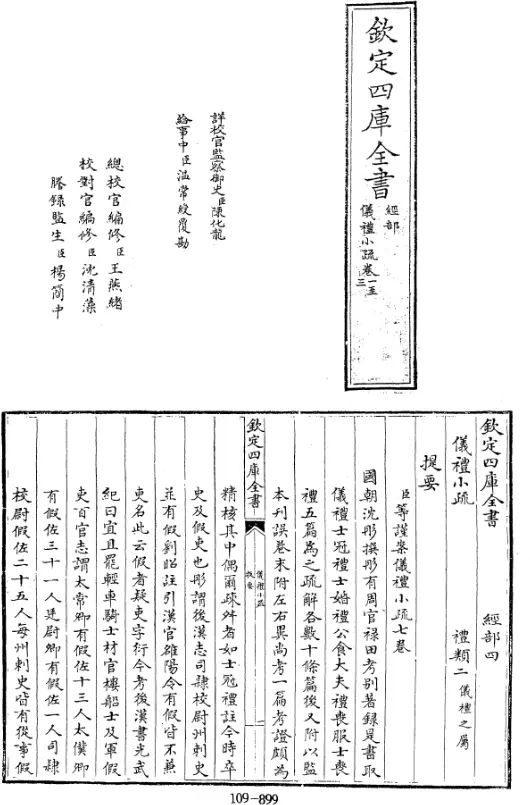 欽定四庫全書
經部
儀禮小疏卷一至三
詳校官監察御史臣陳化龍
給事中臣溫常綬覆勘
總校官編修臣王燕緒
校對官編修臣沈清藻
謄錄監生臣楊簡中
欽定四庫全書 經部四
儀禮小疏 禮類二儀禮之屬
提要
臣等謹案儀禮小疏七卷
國朝沈彤撰彤有周官祿田考別著錄是書取
儀禮士冠禮士婚禮公食大夫禮喪服士喪
禮五篇為之疏解各數十條篇後又附以監
本刊誤卷末附左右異尚考一篇考證頗為
欽定四庫全書
儀禮小疏
提要
一
精核其中偶爾疎舛者如士冠禮註今時卒
史及假吏也彤謂後漢志司隸校尉州刺史
並有假劉昭註引漢官雒陽令有假皆不兼
吏名此云假者疑吏字衍今考後漢書光武
紀曰宜且罷輕車騎士材官樓船士及軍假
吏百官志謂太常卿有假佐十三人太僕卿
有假佐三十一人廷尉卿有假佐一人司隸
校尉假佐二十五人每州刺史皆有從事假
109-899